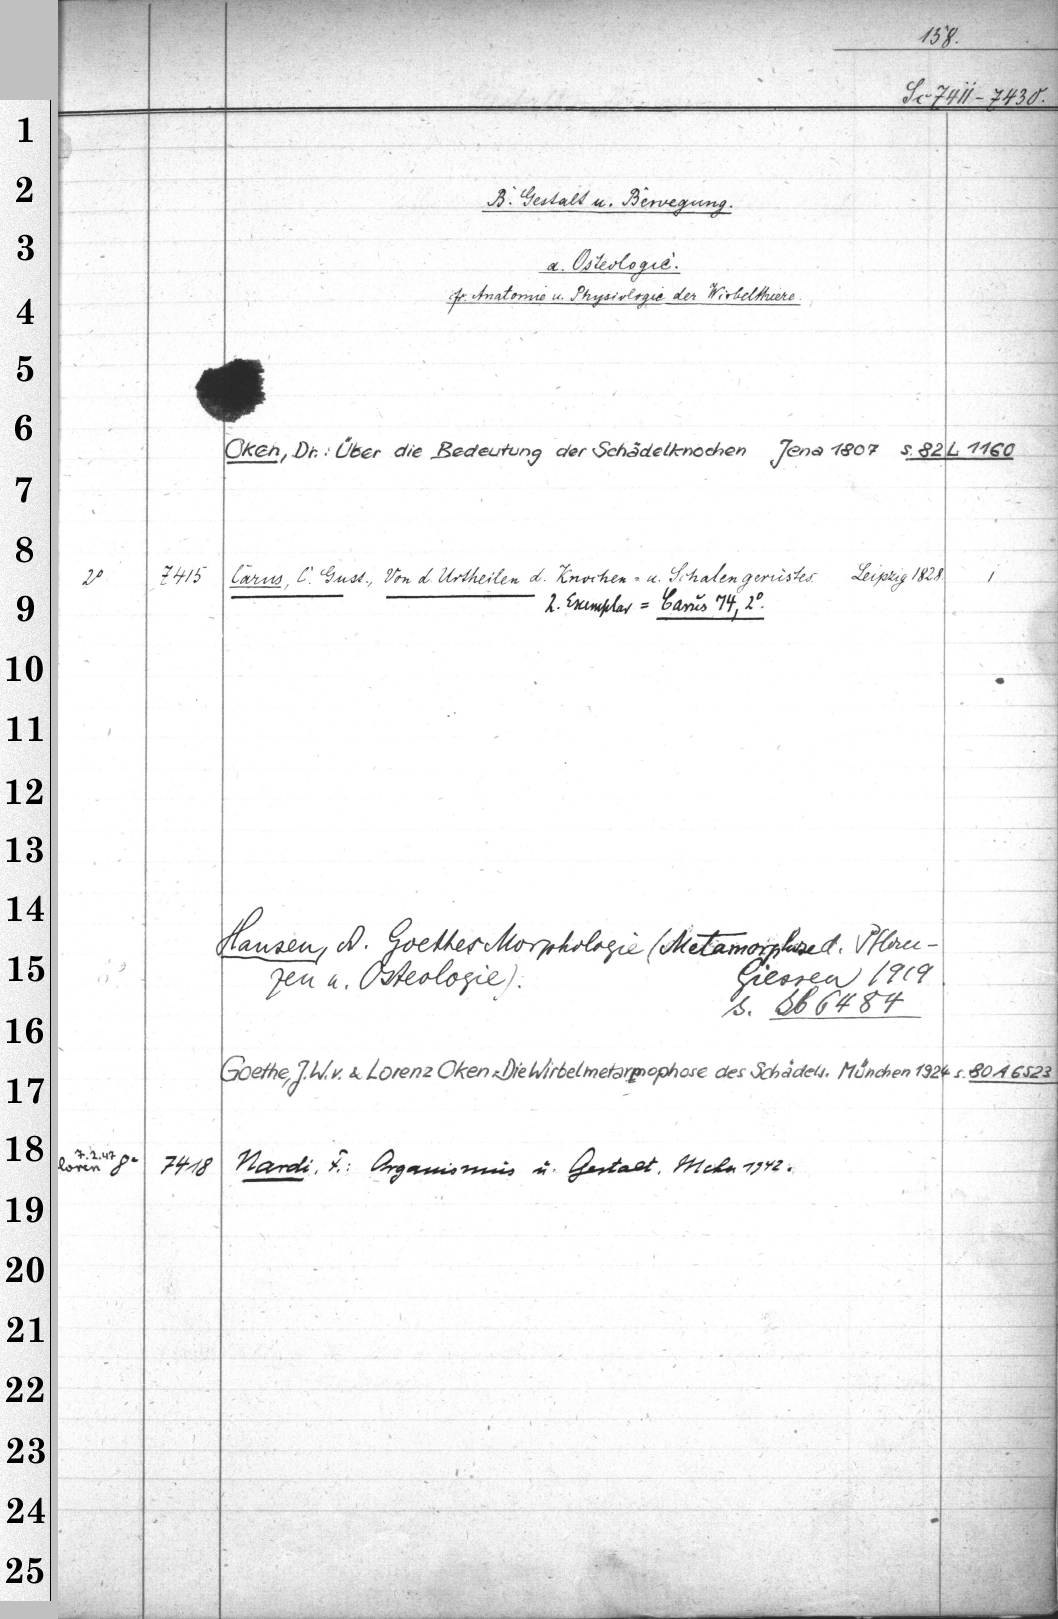 158.
Sc 7411-7430.
1
2
B. Gestalt u. Bewegung.
3
a. Osteologie.
4
fr. Anatomie u. Physiologie der Wirbelthiere.
5
6
Oken, Dr.: Über die Bedeutung der Schädelknochen Jena 1807 s. 82 L 1160
7
8
2° 7415 Carus, C. Gust., Von d Urtheilen d. Knochen- u. Schalengerüstes. Leipzig 1828. 1
9
2. Exemplar = Carus 74, 2°.
10
11
12
13
14
Hansen, A. Goethes Morphologie (Metamorphose d. Pflan-
15
zen u. Osteologie). Giessen 1919
s. Sb 6484
16
Goethe, J.W.v. & Lorenz Oken: Die Wirbelmetarmophose des Schädels. München 1924 s. 80 A 6523
17
18
7.2.47
loren 8° 7418 Nardi, F.: Organismus u. Gestalt. Mchn 1942.
19
20
21
22
23
24
25